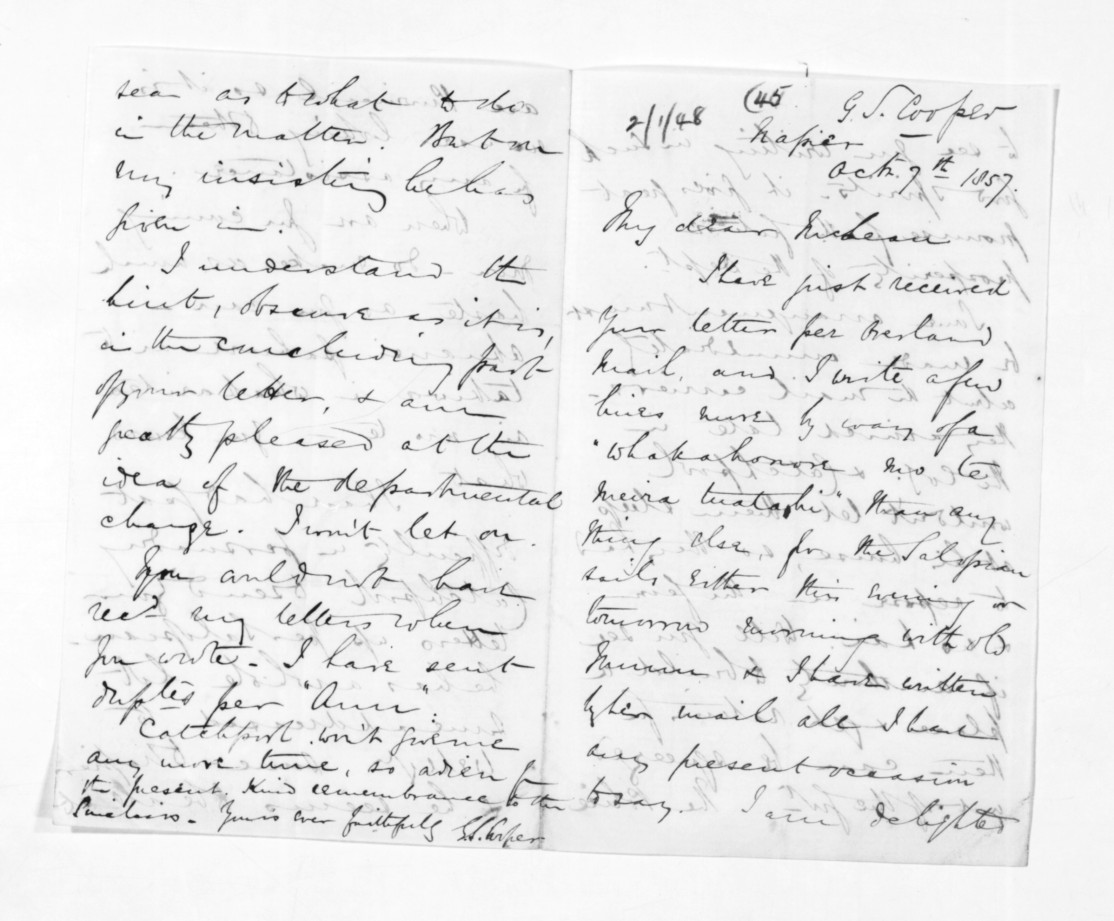 (45
G. S. Cooper
2/1/48
Napier
Octr. 7th 1857.
My dear McLean
I have just received
your letter per overland
mail, and I write a few
lines more by way of a
"whakahonore mo te
meira tuatahi" than any
thing else, for the Salopian
sails either this evening or
tomorrow morning with old
& I have written
by her mail all I have
any present occasion
to say. I am delighted
sea as to what to do
in the matter. But on
my insisting he has
given in.
I understand the
hint, obscure as it is,
in the concluding part
of your letter, & am
greatly pleased at the
idea of the departmental
change. I won't let on.
You could not have
recd. my letters when
you wrote - I have sent
duplts per "Ann".
Catchpool won't give me
any more time, so adieu for
the present. Kind remembrance to the
Sinclairs. Yours ever faithfully G.S. Cooper